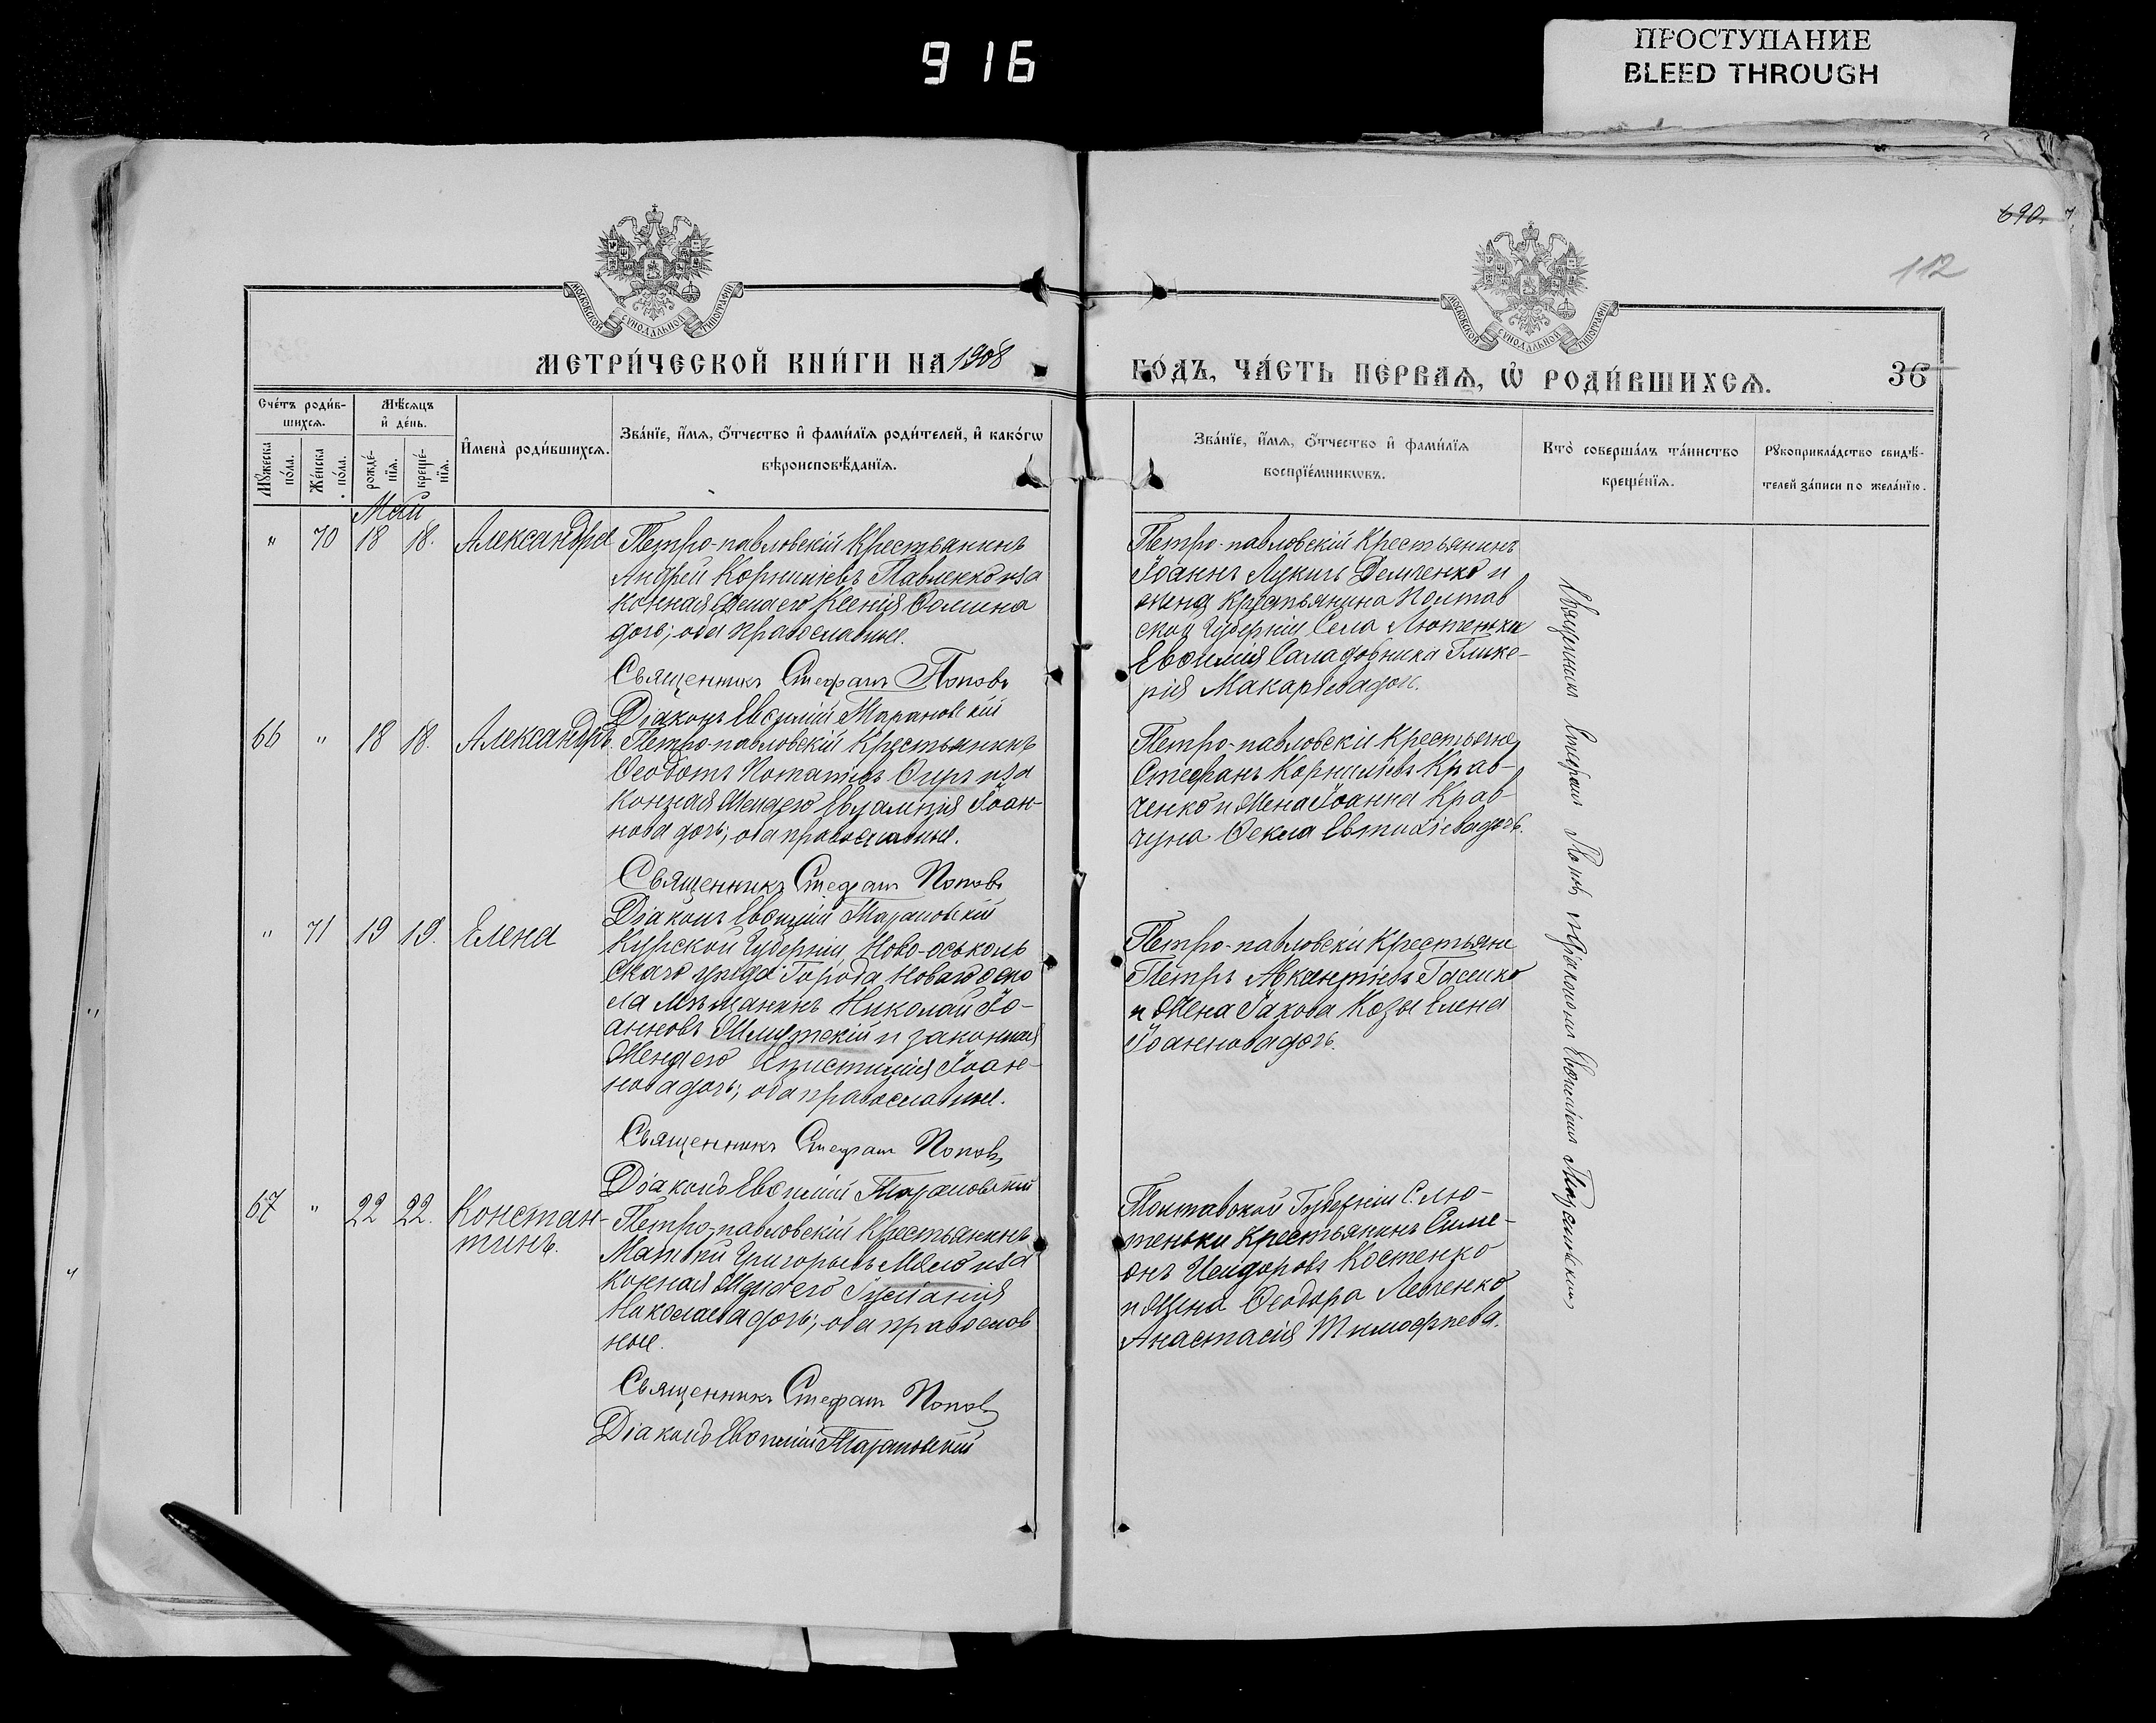 916
ПРОСТУПАНИЕ
BLEED THROUGH
690
112
МОСКОВСКОЙ СѴНОДАЛЬНОЙ ТИПОГРАФІИ
МОСКОВСКОЙ СѴНОДАЛЬНОЙ ТИПОГРАФІИ
МЕТРИ́ЧЕСКОЙ КНИ́ГИ НА 1908
ГО́ДЪ, ЧА́СТЬ ПЕ́РВАѦ, Ѡ҆ РОДИ́ВШИХСѦ.
36
Сче́тъ роди́в-
шихсѧ.
Мѣ́сѧцъ
и҆ де́нь.
Мꙋ́жеска
по́ла.
Же́нска
по́ла.
рожде́-
нїѧ.
креще́-
нїѧ.
И҆мена̀ роди́вшихсѧ.
Зва́нїе, и҆́мѧ, ѻ҆́тчество и҆ фами́лїѧ роди́телей, и҆ како́гѡ
вѣроисповѣ́данїѧ.
Зва́нїе, и҆́мѧ, ѻ҆́тчество и҆ фами́лїѧ
воспрїе́мникѡвъ.
Кто̀ соверша́лъ та́инство
креще́нїѧ.
Рꙋкоприкла́дство свидѣ́-
телей за́писи по жела́нїю.
Май
" 70 18 18. Александра
Петро-павловскій Крестьянинъ
Андрей Корниліевъ Павленко и за
конная жена его Ксенія Ѳомина
дочь; оба православные.
Священникъ Стефанъ Поповъ
Діаконъ Евѳимій Тарановскій
Петро-павловскій Крестьянинъ
Іоаннъ Лукичъ Демченко и
жена Крестьянина Полтав
ской Губерніи Села Лютеньки
Евѳимія Саладовника Глике-
рія Макаріева доч.
66 " 18 18. Александръ.
Петро-павловскій Крестьянинъ
Ѳеодотъ Потапіевъ и за
конная жена его Евлампія Іоан-
нова дочь; оба православные.
Священникъ Стефанъ Поповъ
Діаконъ Евѳимій Тарановскій
Петро-павловскіе Крестьяне
Стефанъ Корниліевъ Крав-
ченко и жена Іоанна Крав
чуна Ѳекла Евтихіева дочь.
" 71 19 19. Елена
Курской Губерніи, Ново-осколь
скаго уѣзда Города Новаго оско
ла мѣщанинъ Николай Іо-
анновъ и законная
жена его Іоан-
нова дочь; оба православные.
Священникъ Стефанъ Поповъ
Діаконъ Евѳимій Тарановскій
Петро-павловскіе Крестьяне
Петръ Гасенко
и жена Іакова Козы Елена
Іоаннова дочь.
67 " 22 22. Констан-
тинъ.
Петро-павловскій Крестьянинъ
Матвѣй Григорьевъ и за
конная жена его Іуліанія
Николаева дочь; оба православ
ные.
Священникъ Стефанъ Поповъ
Діаконъ Евѳимій Тарановскій
Полтавской Губерніи С. Лю-
теньки Крестьянинъ Симе-
онъ Исидоровъ Костенко
и жена Ѳеодора Левченко
Анастасія Тимофеева.
Священникъ Стефанъ Поповъ съ діакономъ Евѳиміемъ Тарановскимъ